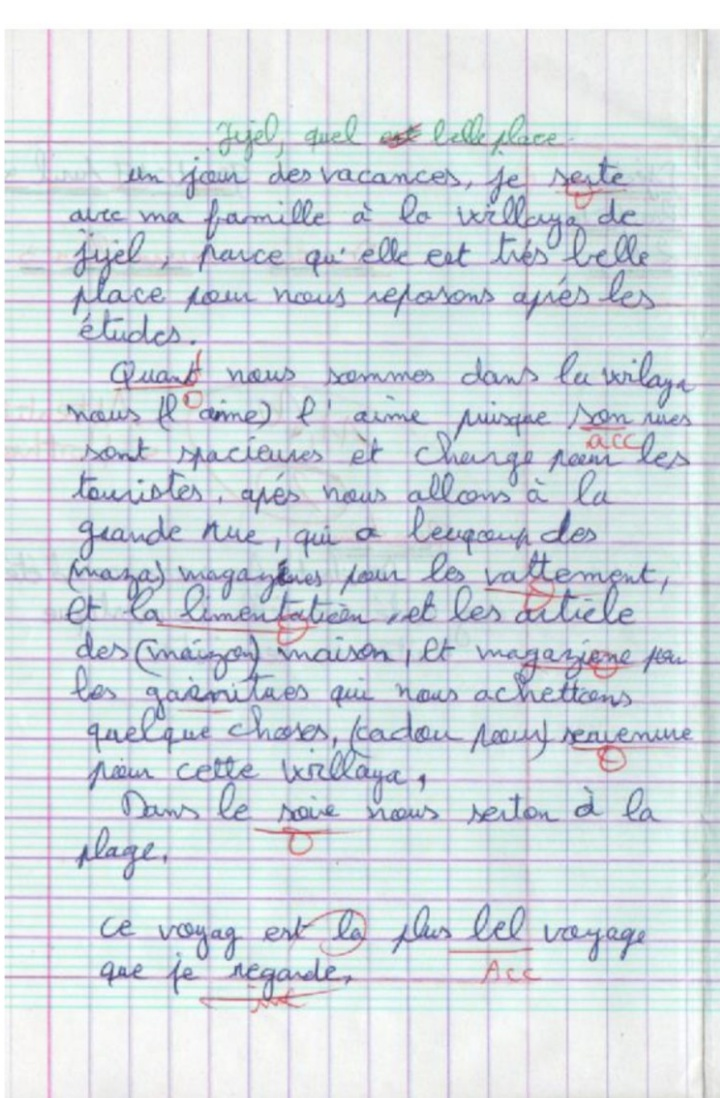 Jijel, quel est belle place.
un jour des vacances, je serte
avec ma famille à la willaya de
jijel, parce qu'elle est très belle
place pour nous reposons après les
études.
Quant nous sommes dans la wilaya
nous (l'aime) l'aime puisque son rues
acc
sont spacieuses et charge pour les
touristes, après nous allons à la
grande rue, qui a beucoup des
(maza) magazines pour les vattement,
et la limentation, et les article
des (maizon) maison, et magaziene pour
les garnitures qui nous achettons
quelque choses, (cadou pour) seuvenure
pour cette willaya,
Dans le soire nous serton à la
plage,
ce voyag est la plus bel voyage
que je regarde,
Acc
int